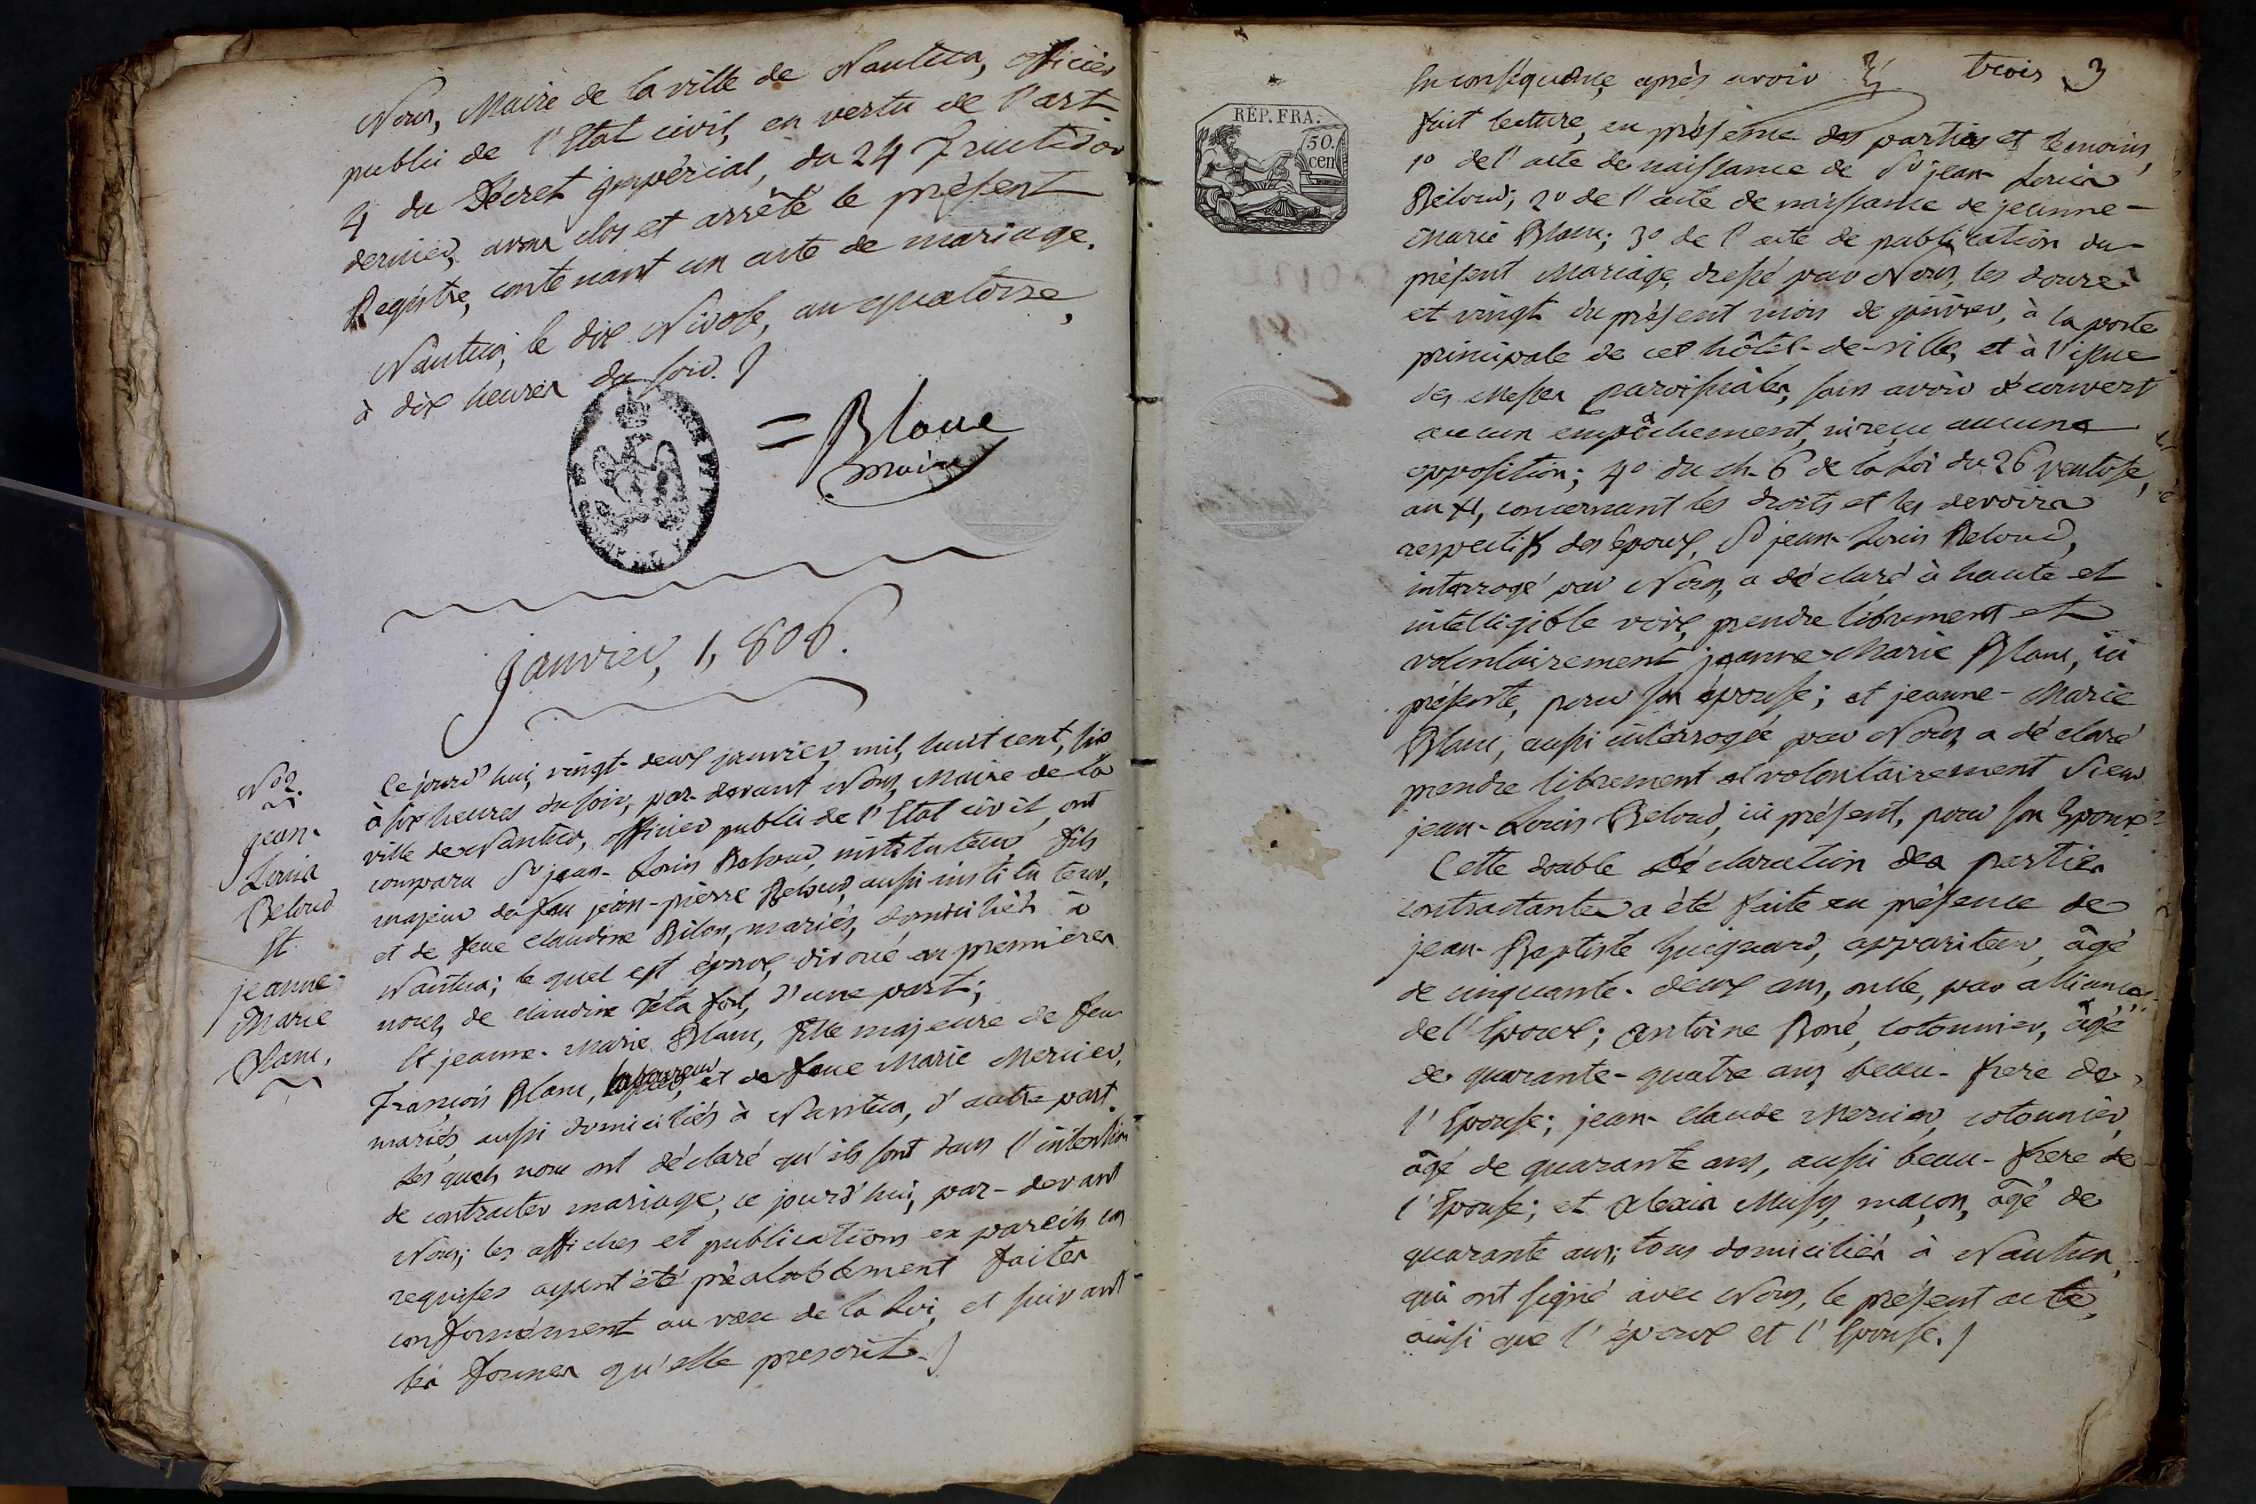 Nous, Maire de la ville de Nantua, officier
public de l'Etat civil, en vertu de l'art
4 du Décret impérial, du 24 Fructidor
dernier, avons clos et arrêté le présent
Registre, contenant un acte de mariage.
Nantua, le dix Nivose, an quatorze,
à dix heures du soir.
= Blanc
maire
Janvier, 1,806.
N° 2.
jean-
Louis
Beloud
Et
jeanne-
Marie
Blanc,
Ce jourd'hui, vingt-deux janvier, mil, huit cent, six
à six heures du soir, par-devant Nous, Maire de la
ville de Nantua, officier public de l'Etat civil, ont
comparu Sr jean-Louis Beloud, instituteur fils
majeur de feu jean-pierre Beloud, aussi instituteur,
et de feue Claudine Bilon, mariés, domiciliés à
Nantua; le quel est époux, divorcé en premières
noces, de claudine d'une part;
Et jeanne-Marie Blanc, fille majeure de feu
François Blanc, laboureur, et de feue Marie Mercier,
mariés, aussi domiciliés à Nantua, d'autre part.
Les quels nous ont déclaré qu'ils sont dans l'intention
de contracter mariage, ce jourd'hui, par-devant
Nous; les affiches et publications en pareils cas
requises ayant été préalablement faites
conformément au vœu de la Loi, et suivant
les formes qu'elle prescrit.
trois 3
RÉP. FRA.
50.
cen
En conséquence, après avoir
fait lecture, en présence des parties et temoins,
1° de l'acte de naissance de Sr jean-Louis
Béloud; 2° de l'acte de naissance de jeanne-
Marie Blanc; 3° de l'acte de publication du
présent Mariage, dressé par Nous, les douze
et vingt du présent mois de janvier, à la porte
principale de cet hôtel-de-ville, et à l'issue
des Messes paroissiales, sans avoir découvert
aucun empêchement, ni reçu aucune
opposition; 4° du ch. 6 de la Loi du 26 ventose,
an XI, concernant les droits et les devoirs
respectifs des époux, Sr jean-Louis Beloud,
interrogé par Nous, a déclaré à haute et
intelligible voix, prendre librement et
volontairement jeanne-Marie Blanc, ici
présente, pour son épouse; et jeanne-Marie
Blanc, aussi interrogée par Nous, a déclaré
prendre librement et volontairement Sieur
jean-Louis Béloud, ici présent, pour son Epoux.
Cette double déclaration des parties
contractantes a été faite en présence de
jean-Baptiste Guignard, appariteur, âgé
de cinquante-deux ans, oncle, par alliance,
de l'Epoux; Antoine Boné, cotonnier, âgé
de quarante-quatre ans, beau-frere de
l'Epouse; jean-Claude Mercier, cotonnier,
âgé de quarante ans, aussi beau-frere de
l'Epouse; et Alexis Musy, maçon, âgé de
quarante ans; tous domiciliés à Nantua,
qui ont signé avec Nous, le présent acte,
ainsi que l'époux et l'Epouse.